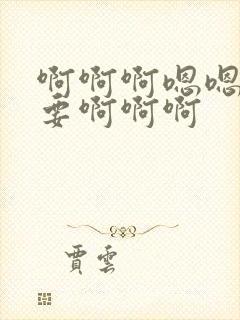 啊啊啊嗯嗯
要啊啊啊
賈雲